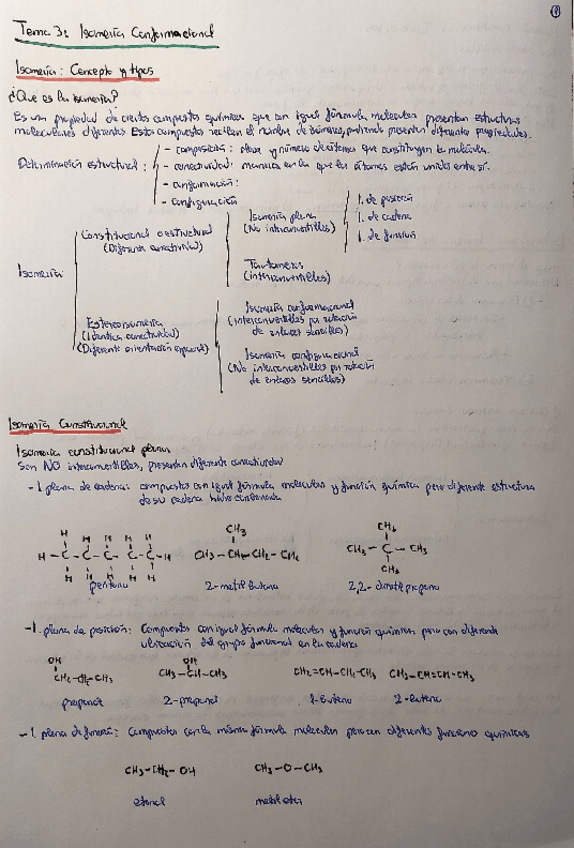 ①
Tema 3: Isomería Conformacional
Isomería: Concepto y tipos
¿Que es la isomería?
Es una propiedad de ciertos compuestos químicos que con igual fórmula molecular presentan estructuras
moleculares diferentes. Estos compuestos reciben el nombre de isómeros, pudiendo presentar diferentes propiedades.
Determinación estructural:
- composición: clase y número de átomos que constituyen la molécula.
- conectividad: manera en la que los átomos están unidos entre sí.
- conformación:
- configuración
Isomería
Constitucional o estructural
(Diferente conectividad)
Isomería plana
(No interconvertibles)
I. de posición
I. de cadena
I. de función
Tautómeros
(interconvertibles)
Estereoisomería
(Idéntica conectividad)
(Diferente orientación espacial)
Isomería conformacional
(Interconvertibles por rotación
de enlaces sencillos)
Isomería configuracional
(No interconvertibles por rotación
de enlaces sencillos)
Isomería Constitucional
Isomería constitucional plana
Son NO interconvertibles, presentan diferente conectividad
- I. plana de cadena: compuestos con igual fórmula molecular y función química pero diferente estructura
de su cadena hidrocarbonada
H H H H H
H-C-C-C-C-C-H
H H H H H
pentano
CH3
CH3-CH-CH2-CH3
2-metil butano
CH3
CH3-C-CH3
CH3
2,2-dimetil propano
- I. plana de posición: Compuestos con igual fórmula molecular y función química pero con diferente
ubicación del grupo funcional en la cadena
OH
CH2-CH2-CH3
propanol
OH
CH3-CH-CH3
2-propanol
CH2=CH-CH2-CH3
1-buteno
CH3-CH=CH-CH3
2-buteno
- I. plana de función: Compuestos con la misma fórmula molecular pero con diferentes funciones químicas
CH3-CH2-OH
etanol
CH3-O-CH3
metil eter